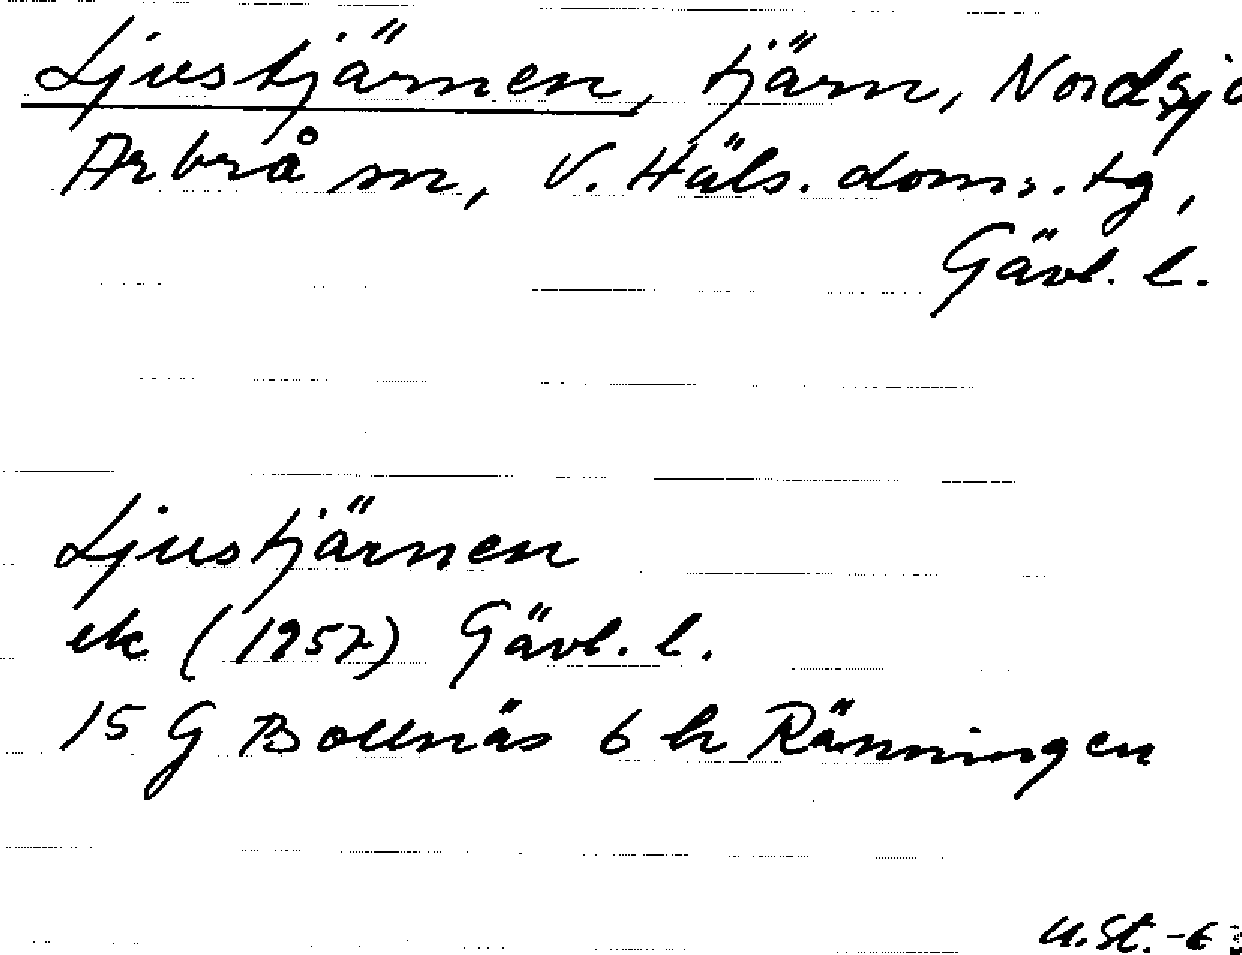 Ljustjärnen, tjärn, Nordsjö
Arbrå sn, V. Häls. doms. tg,
Gävl. l.
Ljustjärnen
ek (1957) Gävl. l.
15 G Bollnäs 6 h Ränningen
U.St.-63